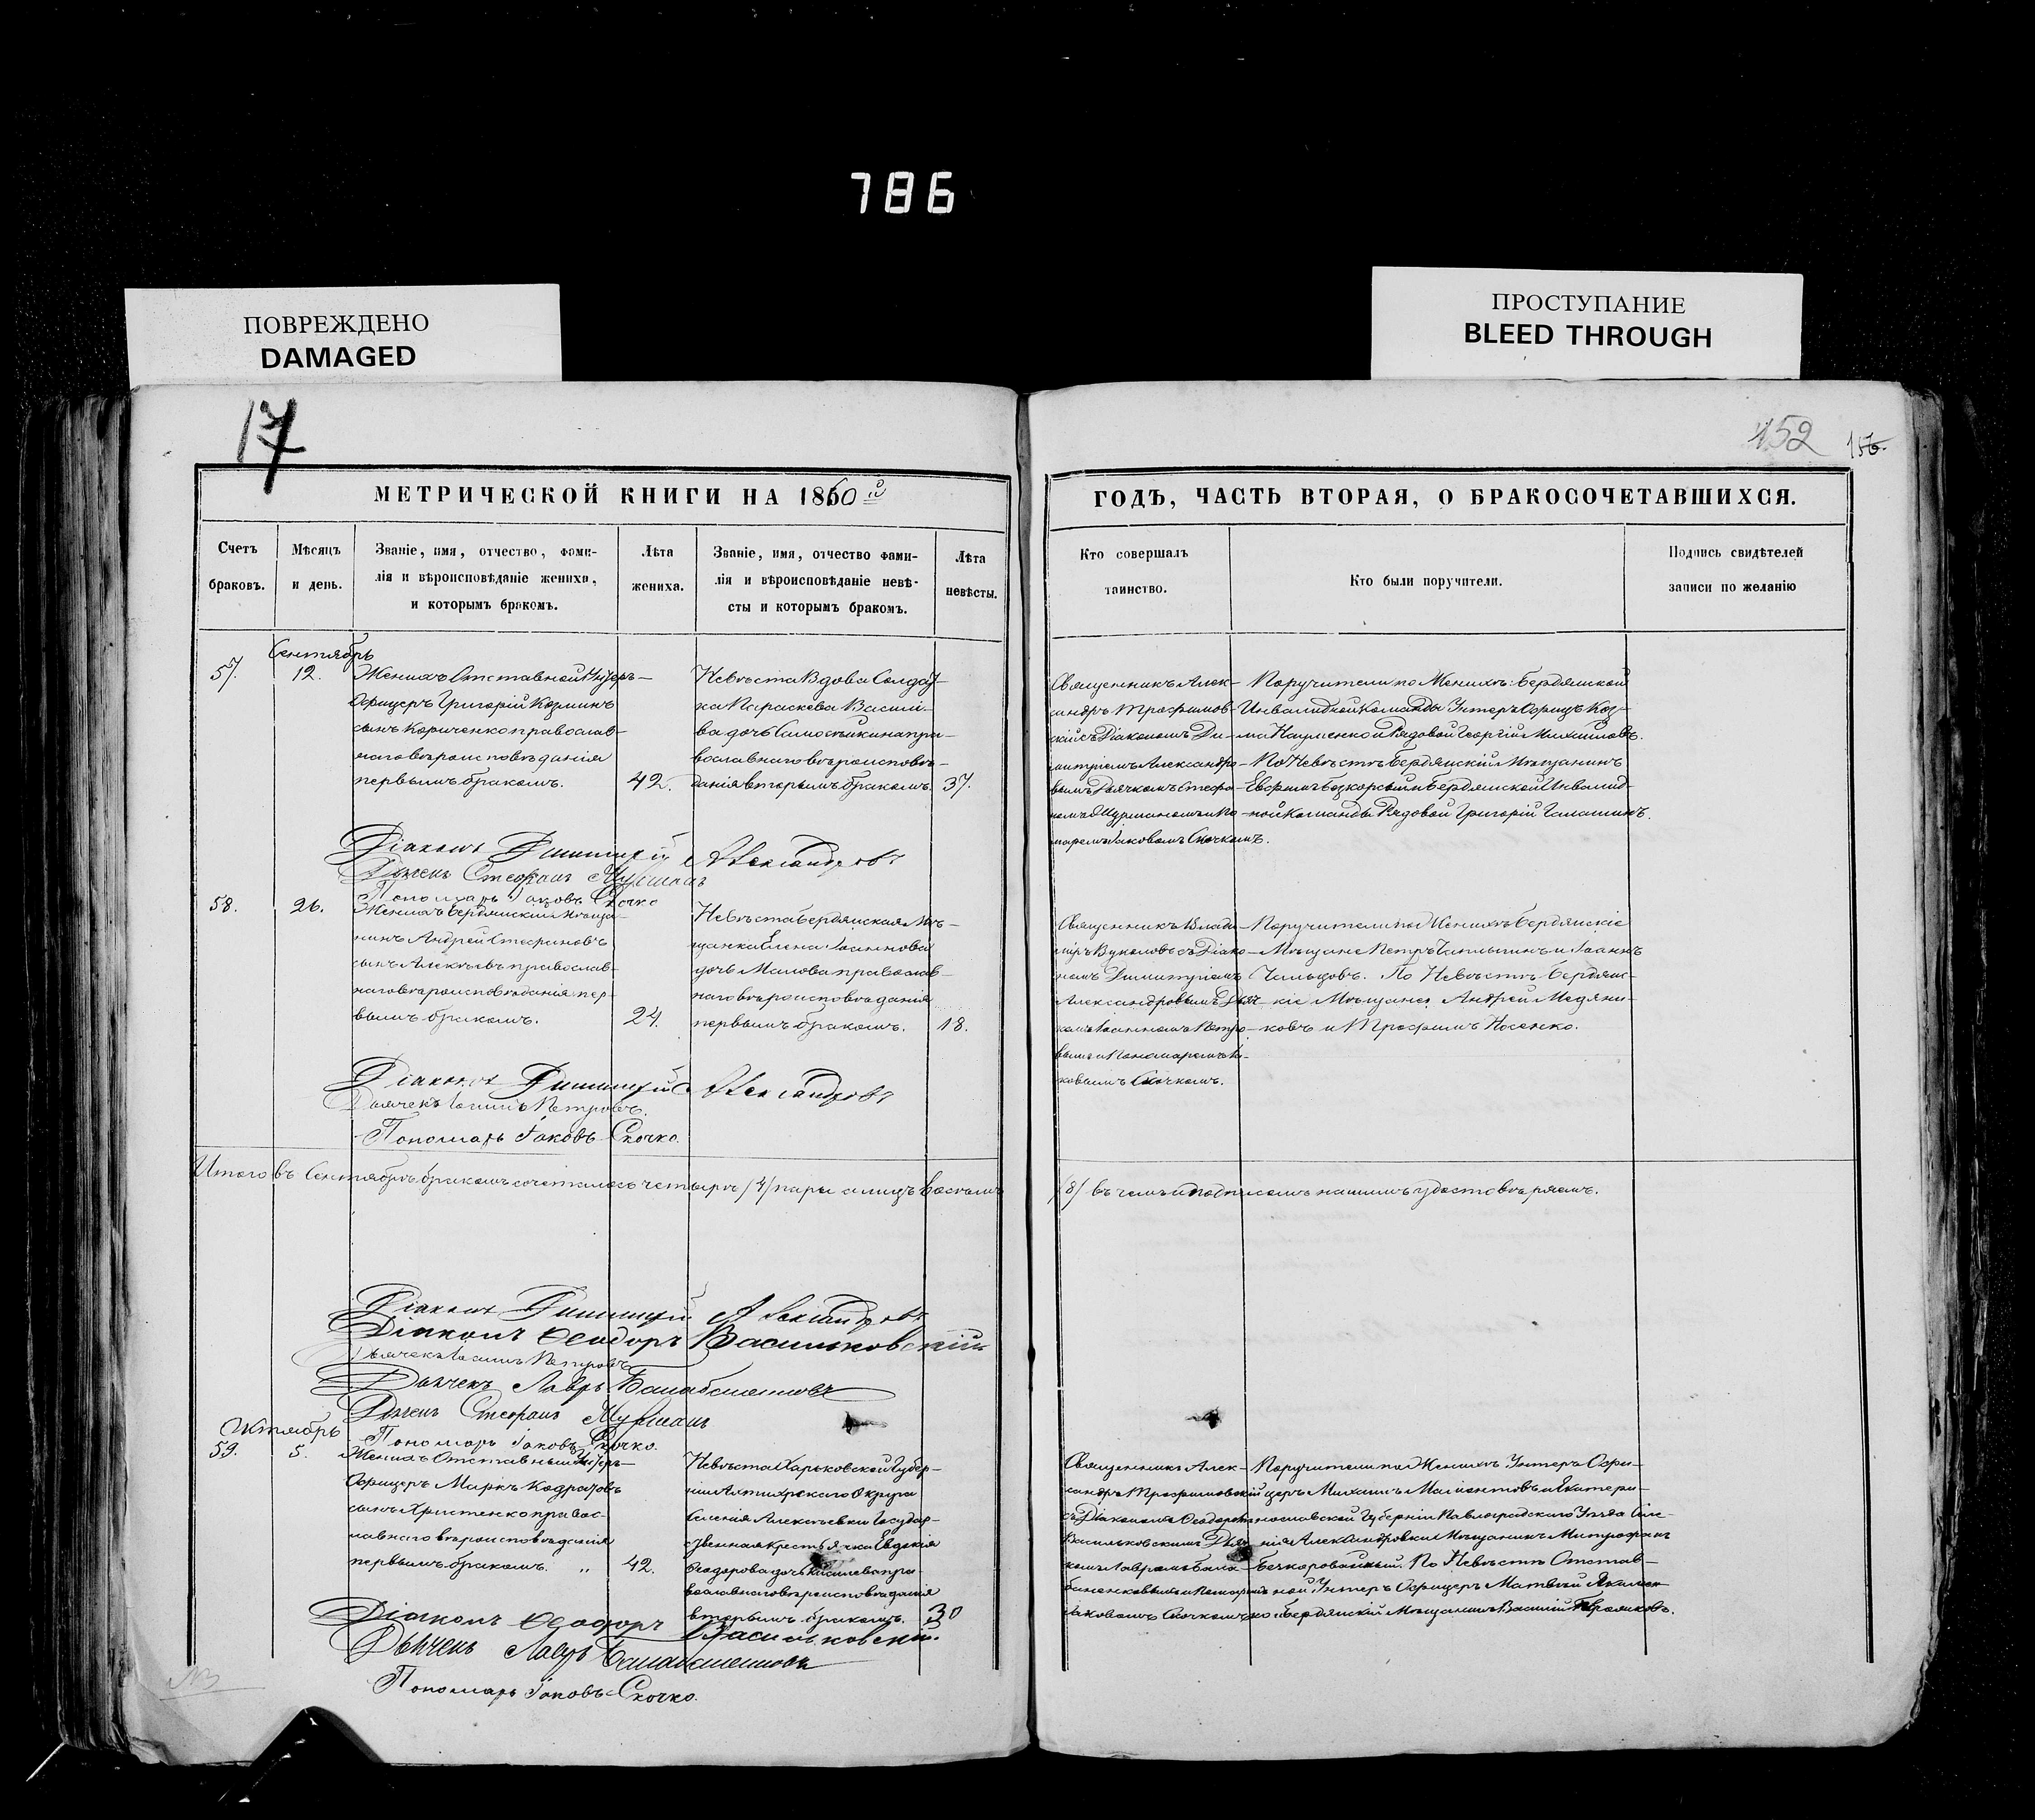 786
ПОВРЕЖДЕНО
DAMAGED
ПРОСТУПАНИЕ
BLEED THROUGH
17
452
156.
МЕТРИЧЕСКОЙ КНИГИ НА 1860й
Счетъ
браковъ.
Мѣсяцъ
и день.
Званіе, имя, отчество, фами-
лія и вѣроисповѣданіе жениха,
и которымъ бракомъ.
Лѣта
жениха.
Званіе, имя, отчество фами-
лія и вѣроисповѣданіе невѣ-
сты и которымъ бракомъ.
Лѣта
невѣсты.
ГОДЪ, ЧАСТЬ ВТОРАЯ, О БРАКОСОЧЕТАВШИХСЯ.
Кто совершалъ
таинство.
Кто были поручители.
Подпись свидѣтелей
записи по желанію
Сентябрь
57.
12.
Женихъ Отставной Унтеръ-
Офицеръ Григорій Козминъ
сынъ Кориченко православ-
наго вѣроисповѣданія
первымъ бракомъ.
42.
Невѣста Вдова Солдат-
ка Параскева Василі-
ва дочь пра-
вославнаго вѣроисповѣ-
данія вторымъ бракомъ.
37.
Священникъ Алек-
сандръ Трофимов-
скій съ Діакономъ Ди-
митріемъ Александро-
вымъ Дьячкомъ Стефа-
номъ и Поно-
маремъ Іаковомъ Скочкомъ.
Поручители по Женихѣ: Бердянской
Инвалидной Команды Унтеръ Офицеръ Коз-
ма Науменко и Рядовой Георгій Михайловъ.
По Невѣстѣ Бердянскій Мѣщанинъ
Евфимъ и Бердянской Инвалид-
ной Команды Рядовой Григорій
Діаконъ Димитрій Александровъ
Дьячекъ Стефанъ
Пономарь Іаковъ Скочко
58.
26.
Женихъ Бердянскій Мѣща-
нинъ Андрей Стефановъ
сынъ Алексѣевъ православ-
наго вѣроисповѣданія пер-
вымъ бракомъ.
24.
Невѣста Бердянская Мѣ-
щанка Елена Іаннова
дочь Малова православ-
наго вѣроисповѣданія
первымъ бракомъ.
18.
Священникъ Влади-
міръ Вуколовъ съ Діако-
номъ Димитріемъ
Александровымъ Дьяч-
комъ Іоанномъ Петро-
вымъ и Пономаремъ Іа-
ковымъ Скочкомъ.
Поручители по Женихѣ Бердянскіе
Мѣщане Петръ и Іоаннъ
По Невѣстѣ Бердянс-
кіе Мѣщане Андрей Медяни-
ковъ и Трофимъ Носенко.
Діаконъ Димитрій Александровъ
Дьячекъ Іоаннъ Петровъ.
Пономарь Іаковъ Скочко.
Итого въ Сентябрѣ бракомъ сочеталось четыре /4/ пары а лицъ восемь
/8/ въ чемъ и подписомъ нашимъ удостовѣряемъ.
Діаконъ Димитрій Александровъ
Діаконъ Ѳеодоръ Васильковскій
Дьячекъ Іоаннъ Петровъ
Дьячекъ Лавръ
Дьячекъ Стефанъ
Пономарь Іаковъ Скочко.
Октябрь
59.
5.
Женихъ Отставный Унтеръ-
Офицеръ Маркъ Кодратовъ
сынъ Христенко правос-
лавнаго вѣроисповѣданія
первымъ бракомъ. „
42.
Невѣста Харьковской Губер-
ніи Ахтырскаго Округа
селенія Алексѣевки Государ-
ственная крестьянка Евдокія
Ѳеодорова дочь пра-
вославнаго вѣроисповѣданія
вторымъ бракомъ.
30
Священникъ Алек-
сандръ Трофимовскій
съ Діакономъ Ѳеодоромъ
Васильковскимъ Дьяч-
комъ Лавромъ Бала-
баненковымъ и Пономаремъ
Іаковомъ Скочкомъ
Поручители по Женихѣ Унтеръ Офи-
церъ Михаилъ Маліентовъ и Екатери-
нославской Губерніи Павлоградскаго Уѣзда Селе-
нія Александровки Мѣщанинъ Митрофанъ
По Невѣстѣ Отстав-
ной Унтеръ Офицеръ Матвѣй
и Бердянскій Мѣщанинъ Василій
Діаконъ Ѳеодоръ Васильковскій.
Дьячекъ Лавръ
Пономарь Іаковъ Скочко.